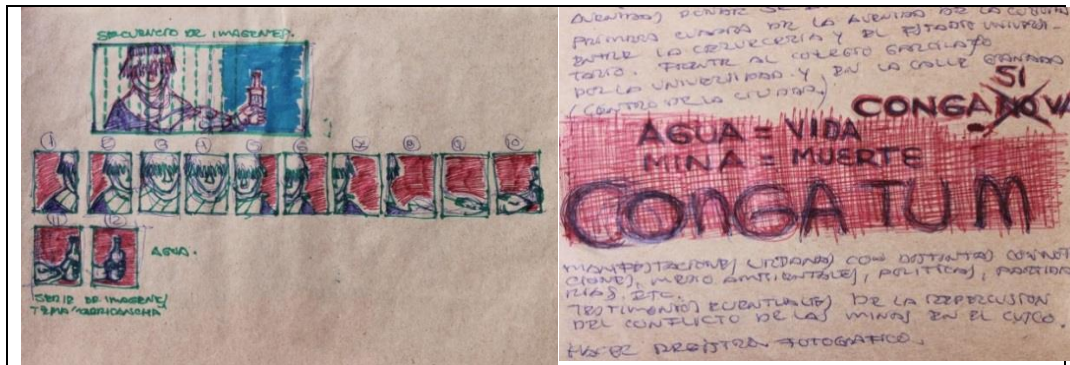 SECUENCIA DE IMAGENES.
1 2 3 4 5 6 7 8 9 10
11 12
AGUA.
SERIE DE IMAGENES
TEMA: QORICANCHA
AVENIDAS DONDE SE
PRIMERA CUADRA DE LA AVENIDA DE LA
ENTRE LA CERVECERIA Y EL ESTADIO UNIVERSI-
TARIO. FRENTE AL COLEGIO GARCILASO
LA UNIVERSIDAD. Y EN LA CALLE GRANADA
(CENTRO DE LA CIUDAD.)
SI
CONGA NO VA
AGUA = VIDA
MINA = MUERTE
CONGATUM
MANIFESTACIONES URBANAS CON DISTINTAS CONNOTA
CIONES, MEDIO AMBIENTALES, POLITICAS,
ETC.
TESTIMONIOS EVENTUALES DE LA REPERCUSION
DEL CONFLICTO DE LAS MINAS EN EL CUSCO.
HACER REGISTRO FOTOGRAFICO.